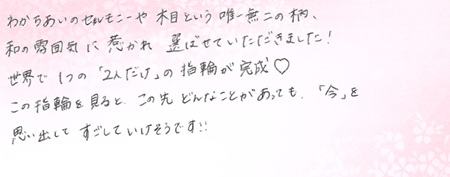 わかちあいのセレモニーや 木目という 唯一無二の柄、
和の雰囲気に 惹かれ 選ばせていただきました!
世界で 1つの「2人だけ」の 指輪が 完成♡
この指輪を見ると、この先 どんなことがあっても、「今」を
思い出して すごしていけそうです!!